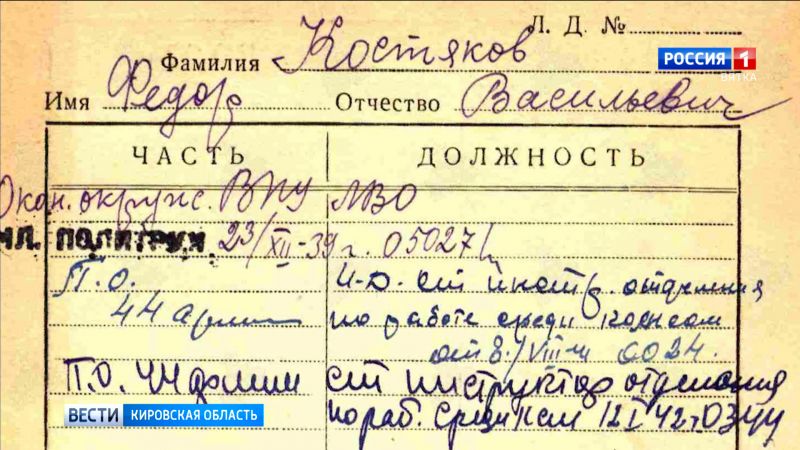 Л. Д. №
Фамилия Костяков
РОССИЯ 1
ВЯТКА
Имя Федор Отчество Васильевич
ЧАСТЬ ДОЛЖНОСТЬ
Окон. окружн. ВПУ ЛВО
МЛ. ПОЛИТРУК 23/XII-39 г. 05027
П.О. И-О. ст инстр. отделения
44 армии по работе среди
от 8/VIII-41 0024.
П.О. 44 армии ст инструктор отделения
по раб. среди 12 I 42 г. 0344
ВЕСТИ КИРОВСКАЯ ОБЛАСТЬ